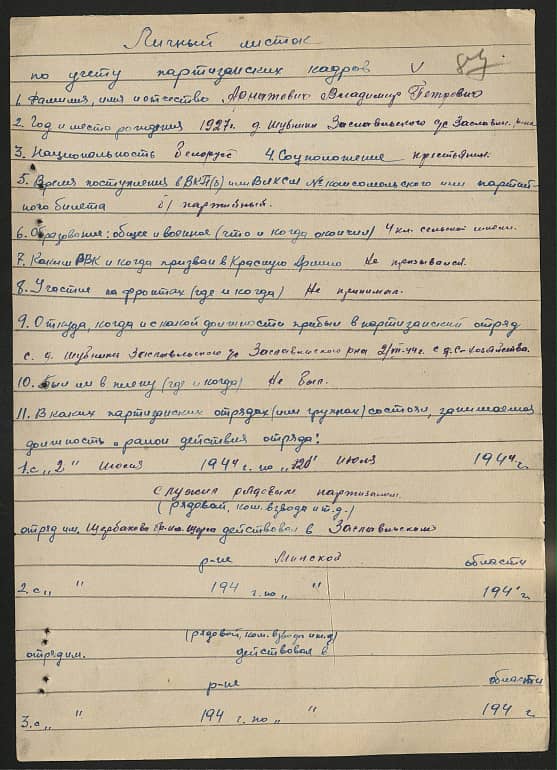 Личный листок
по учету партизанских кадров V
1. Фамилия, имя и отчество Владимир Петрович
2. Год и место рождения 1927г. д. Шубники Заславльского с/с Заславл. р-на
3. Национальность белорусс 4. Соцположение крестьянин.
5. Время поступления в ВКП(б) или ВЛКСМ № комсомольского или партий-
ного билета б/партийный.
6. Образование: общее и военное (что и когда окончил) 4 кл. сельской
7. Каким РВК и когда призван в Красную Армию Не призывался.
8. Участие на фронтах (где и когда) Не принимал.
9. Откуда, когда и с какой должности прибыл в партизанский отряд
с д. Шубники Заславльского с/с Заславльского р-на 44г. с д. С-хозяйства.
10. Был ли в плену (где и когда) Не был.
11. В каких партизанских отрядах (или группах) состоял, занимаемая
должность и район действия отряда:
1. с „2" июня 1944 г. по „20" июля 1944 г.
Служил рядовым партизаном.
(рядовой, ком. взвода и т.д.)
отряд им. Щербакова действовал в Заславльском
р-не Минской области
2. с „ " 194 г. по „ " 194 г.
(рядовой, ком. взвода и т.д)
отряд им. действовал в
р-не области
3. с „ " 194 г. по „ " 194 г.